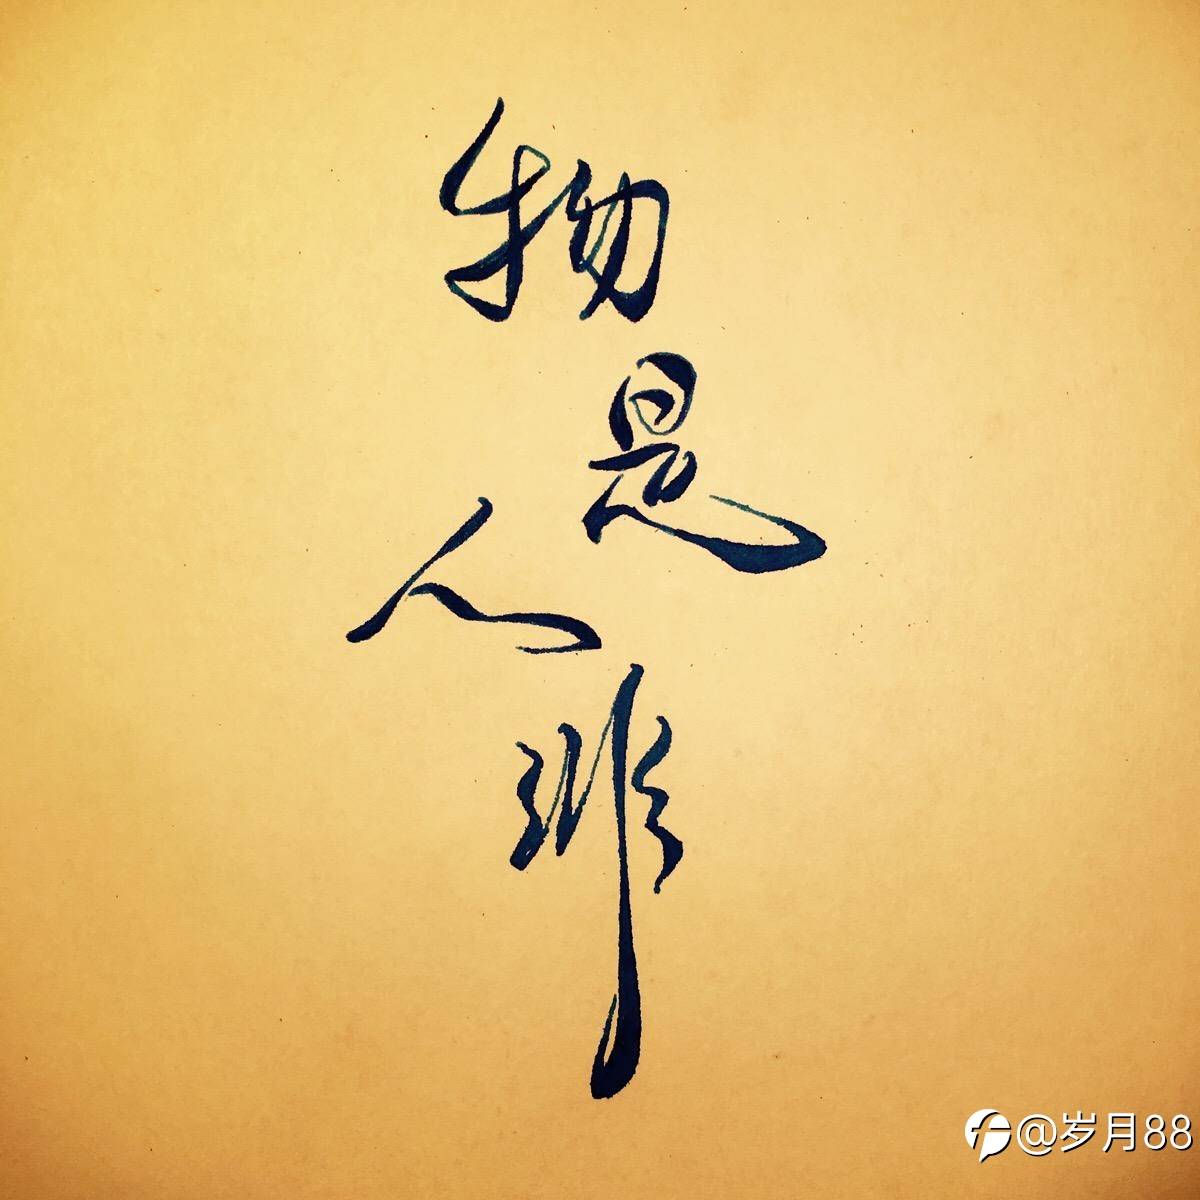 物
是
人
非
@岁月88